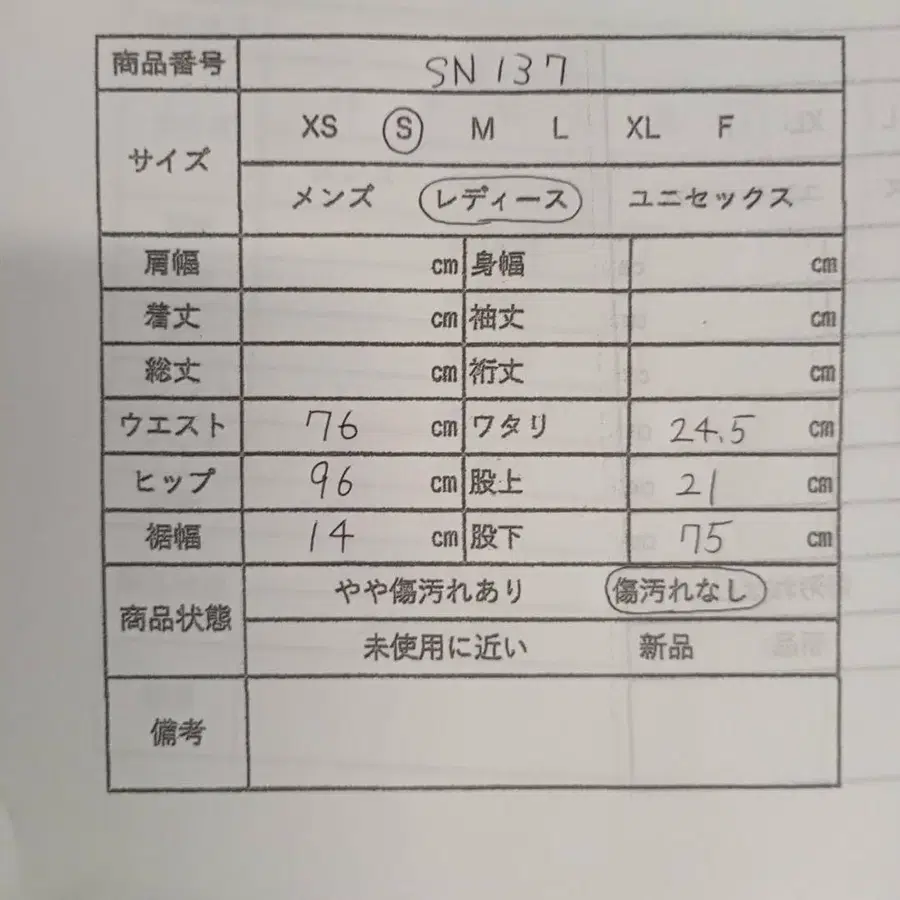 商品番号 SN137
サイズ XS S M L XL F
メンズ レディース ユニセックス
肩幅 cm 身幅 cm
着丈 cm 袖丈 cm
総丈 cm 裄丈 cm
ウエスト 76 cm ワタリ 24.5 cm
ヒップ 96 cm 股上 21 cm
裾幅 14 cm 股下 75 cm
商品状態 やや傷汚れあり 傷汚れなし
未使用に近い 新品
備考